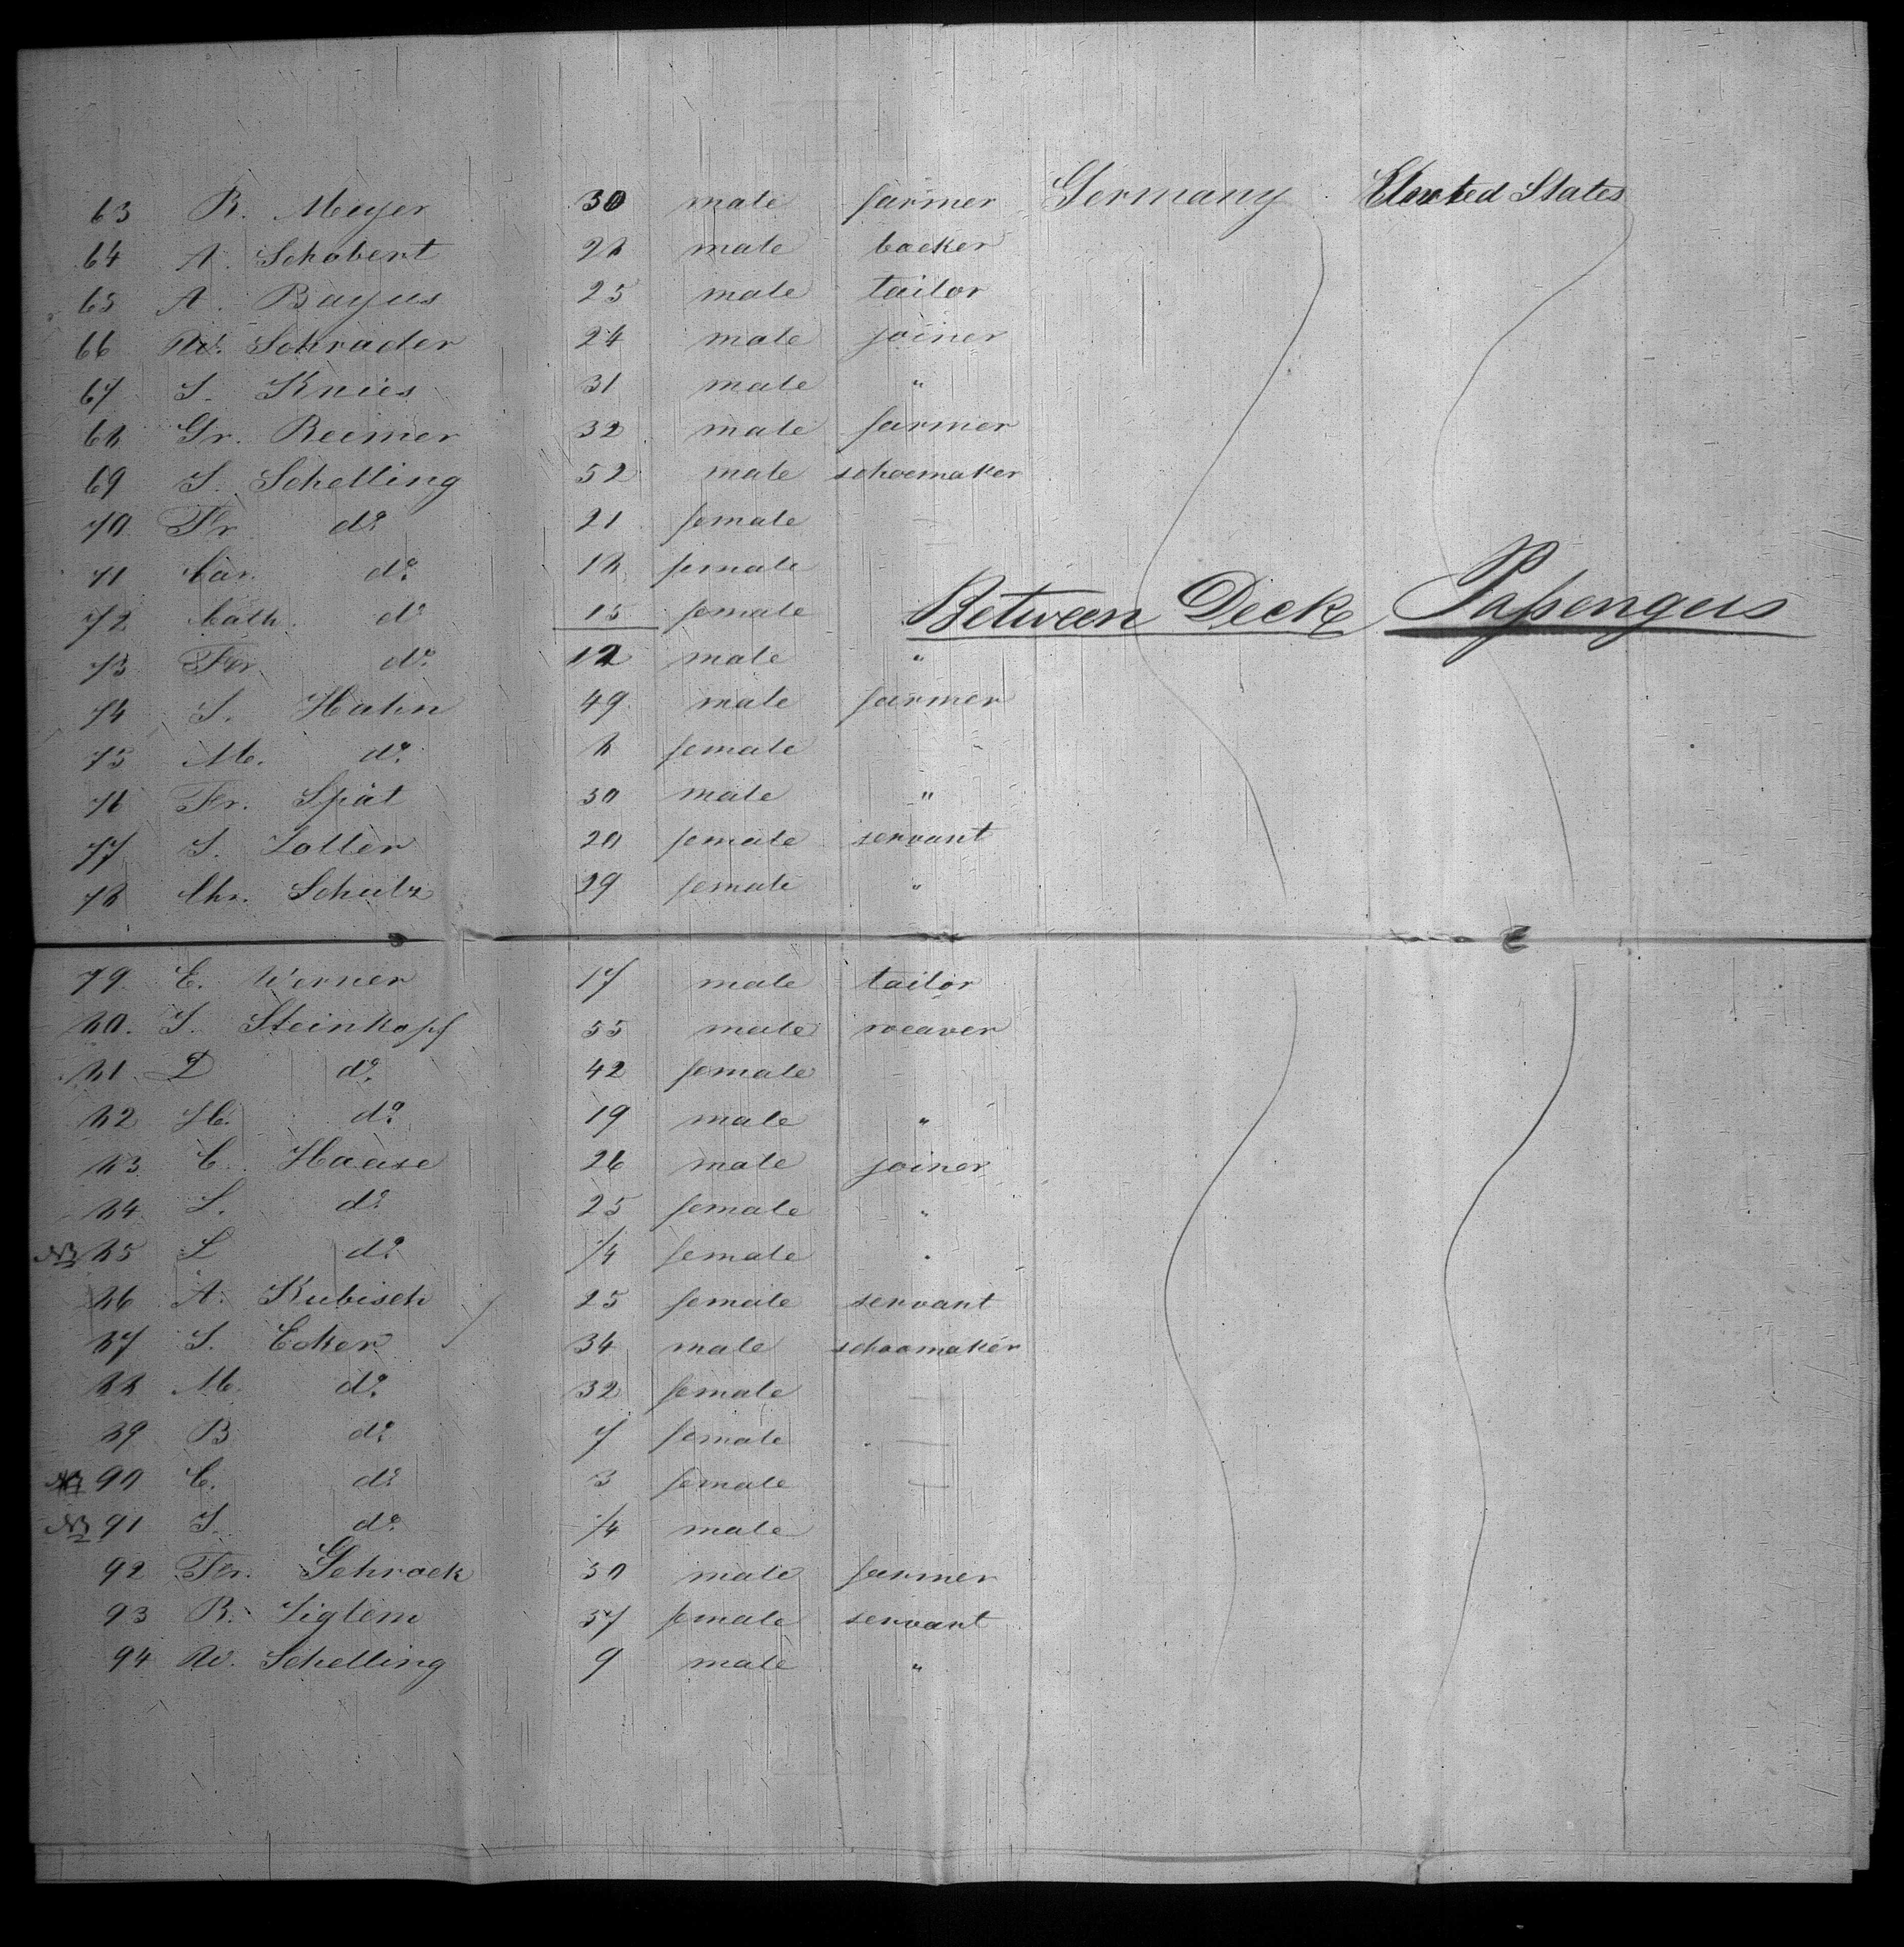 63 B. Meyer 30 male farmer Germany United States
64 A. Schobert 28 male backer
65 A. Bayus 25 male tailor
66 W. Schrader 24 male joiner
67 J. Knies 31 male "
68 Gr. Reimer 32 male farmer
69 J. Schelling 52 male schoemaker
70 Fr. do 21 female
71 Car. do 18 female
72 Cath. do 15 female
Between Deck Passengers
73 Fr. do 12 male "
74 J. Hahn 49 male farmer
75 M. do 8 female
76 Fr. Spät 30 male "
77 J. Zoller 20 female servant
78 Chr. Schulz 29 female "
79 E. Werner 17 male tailor
80. J. Steinkopf 55 male weaver
81 D do 42 female
82 H. do 19 male "
83 C. Haase 26 male joiner
84 L. do 25 female "
NB 85 L do 1/4 female "
86 A. Kubisch 25 female servant
87 J. Ecker 34 male schoemaker
88 M. do 32 female
89 B do 7 female
NB 90 C. do 3 female
NB 91 J. do 1/4 male
92 Fr. Schrock 30 male farmer
93 R. Ziglem 57 female servant
94 W. Schelling 9 male "